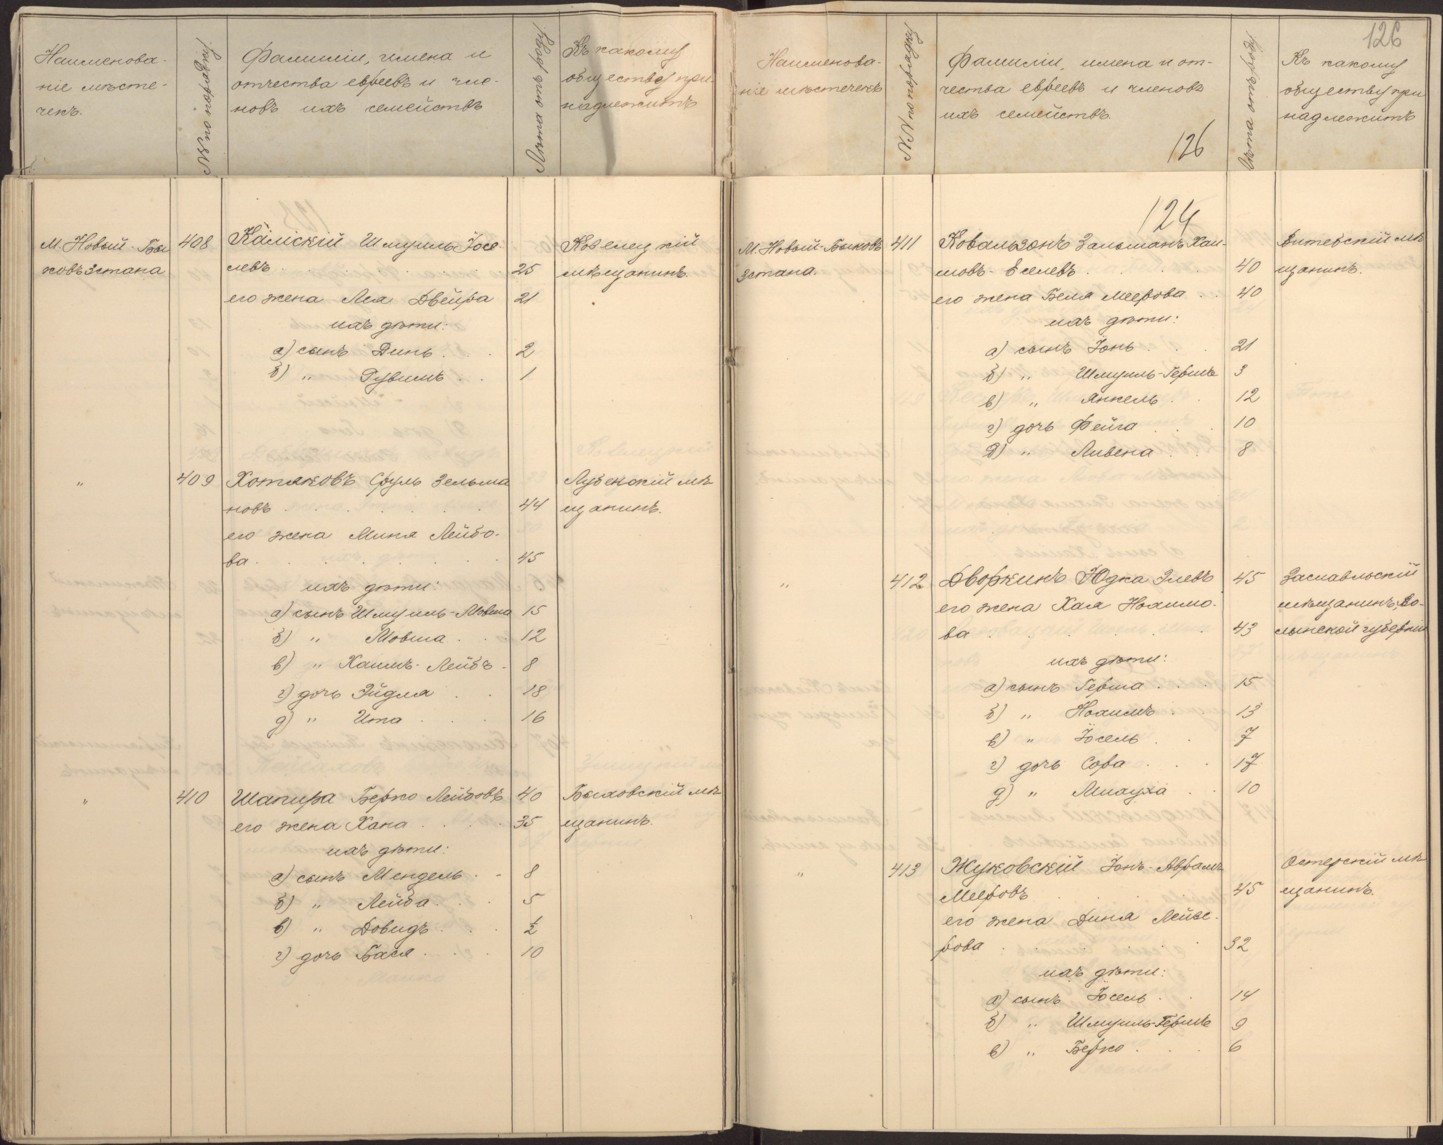 Наименова-
ніе мѣсте-
чекъ.
№№ по порядку.
Фамиліи, имена и
отчества евреевъ и чле-
новъ ихъ семействъ
Лѣта отъ роду
Къ какому
обществу при
надлежитъ
М. Новый-Бы
ковъ 3 стана
408
Шмуиль Іосе
левъ
25
Козелецкій
мѣщанинъ.
его жена Ася Двейра 21
ихъ дѣти:
а) сынъ Динь 2
б) „ Рувимъ 1
„ 409 Хотяковъ Сруль Зельма
новъ 44
Лубенскій мѣ
щанинъ.
его жена Миня Лейбо-
ва 45
ихъ дѣти:
а) сынъ Шмуиль-Мовша 15
б) „ Мовша 12
в) „ Хаимъ-Лейбъ 8
г) дочь Эйдля 18
д) „ Ита 16
410 Шапира Берко Лейбовъ 40 Быховскій мѣ
его жена Хана 35 щанинъ.
ихъ дѣти:
а) сынъ Мендель 8
б) „ Лейба 5
в) „ Довидъ ½
г) дочь Бася 10
126
Наименова-
ніе мѣстечекъ
№№ по порядку
Фамиліи, имена и от-
чества евреевъ и членовъ
ихъ семействъ.
126
Лѣта отъ роду
Къ какому
обществу при
надлежитъ
124
М. Новый-Быковъ
3 стана.
411 Ковальзонъ Залманъ Хаи-
мовъ-Еселевъ 40
Витебскій мѣ
щанинъ.
его жена Беля Меерова 40
ихъ дѣти:
а) сынъ Іонь 21
б) „ Шмуиль-Гершъ 3
в) „ Янкель 12
г) дочь Фейга 10
д) „ 8
„ 412 Дворкинъ Юдка Элевъ 45 Заславльскій
его жена Хая Нохимо-
ва 43
мѣщанинъ, Во-
лынской губерніи
ихъ дѣти:
а) сынъ Герша 15
б) „ Нохимъ 13
в) „ Іосель 7
г) дочь Сора 17
д) „ 10
„ 413 Жуковскій Іонъ-Абрамъ
Мееровъ 45
Остерскій мѣ
щанинъ.
его жена Диня Лейзе-
рова 32
ихъ дѣти:
а) сынъ Іосель 14
б) „ Шмуиль-Гершъ 9
в) „ Берко 6